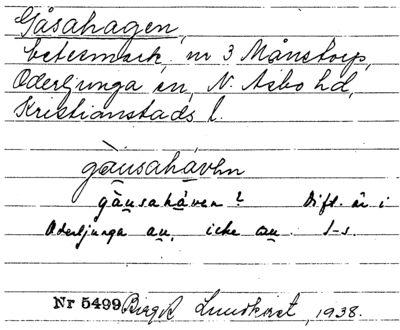 Gåsahagen,
betesmark nr 3 Månstorp,
Oderljunga sn, N. Åsbo hd,
Kristianstads l.
gàusahávhn
gàusaháven? Dift. är i
Oderljunga au, icke æu. S-s.
Nr 5499 Birgit Lundkvist, 1938.